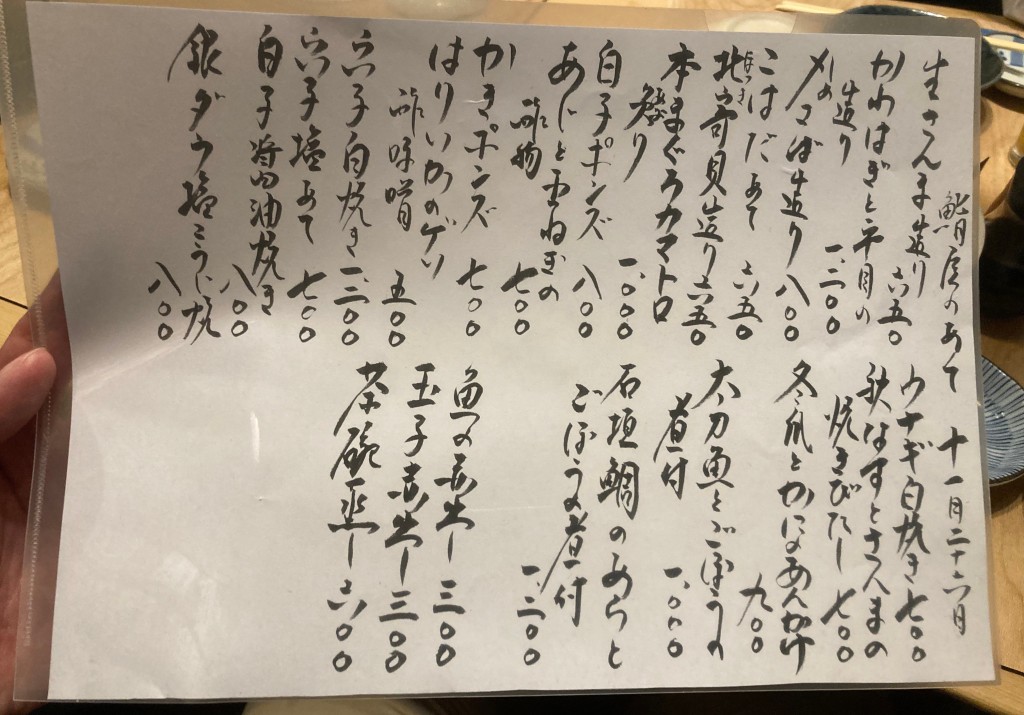 鮨屋のあて 十一月二十六日
生さんま造り 六五〇
かわはぎと平目の
造り 一、二〇〇
〆さば造り 八〇〇
こはだあて 六五〇
ほっき
北寄貝造り 六五〇
本まぐろカマトロ
造り 一、〇〇〇
白子ポンズ 八〇〇
あじと玉ねぎの
酢物 七〇〇
かきポンズ 七〇〇
はりいかのゲソ
酢味噌 五〇〇
穴子白焼き 一、二〇〇
穴子塩あて 七〇〇
白子醤油焼き 八〇〇
銀ダラ塩こうじ焼 八〇〇
ウナギ白焼き 七〇〇
秋なすとさんまの
焼きびたし 七〇〇
冬瓜とかにあんかけ 九〇〇
太刀魚とごぼうの
煮付 一、〇〇〇
石垣鯛のあらと
ごぼうの煮付 一、二〇〇
魚の赤出し 三〇〇
玉子赤出し 三〇〇
茶碗蒸し 六〇〇